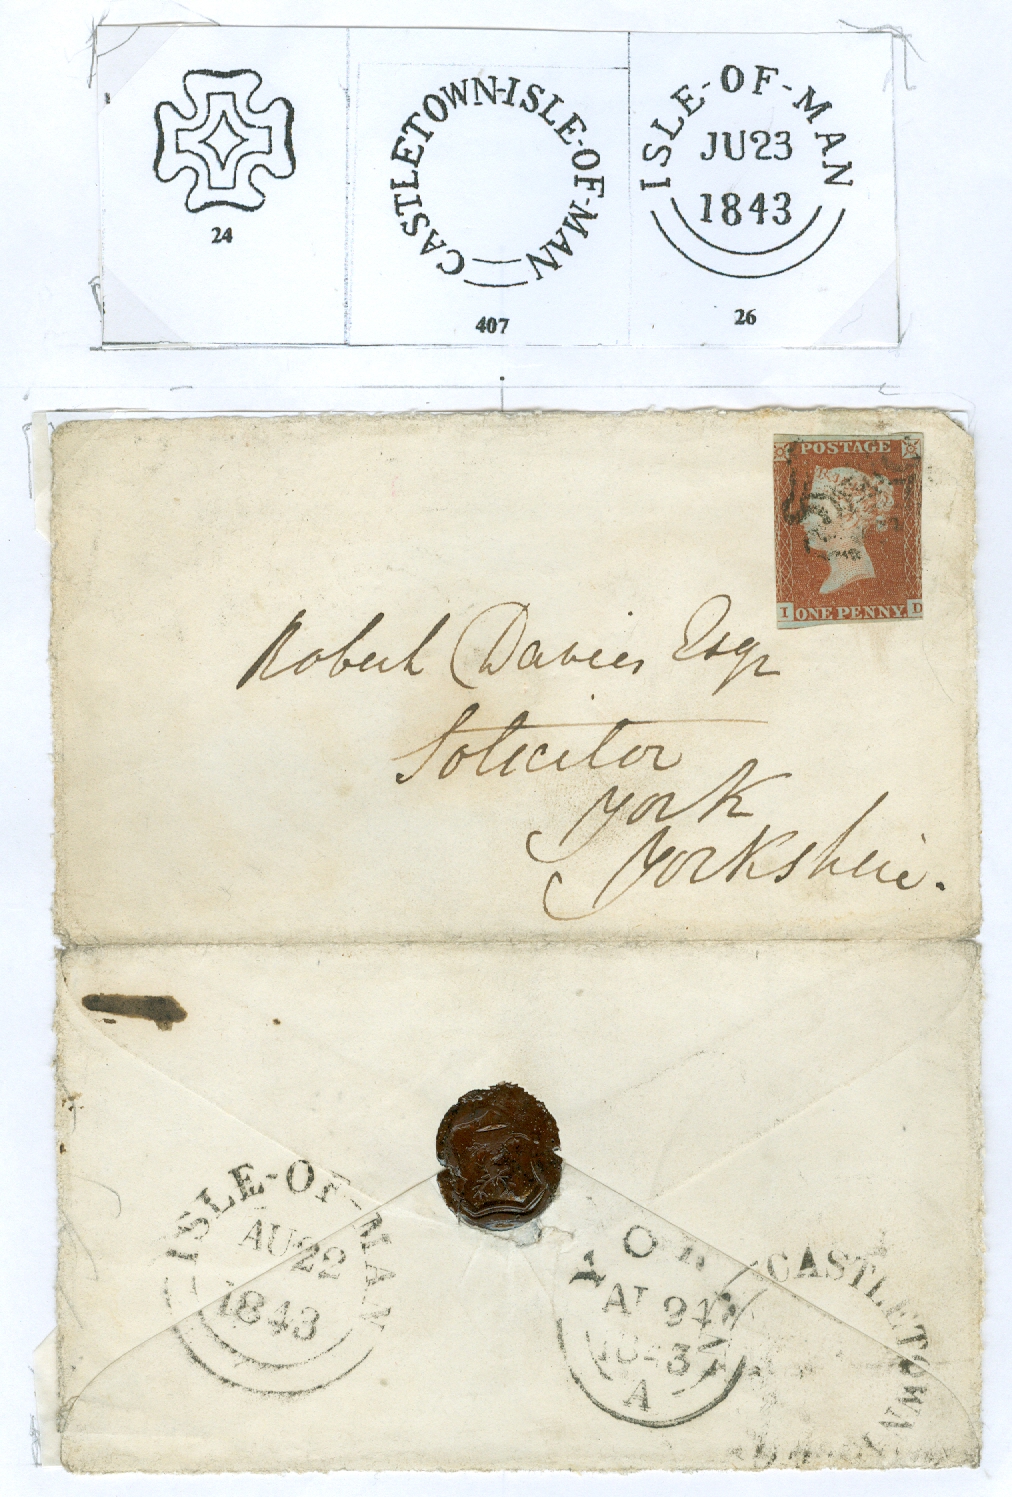 24
CASTLETOWN-ISLE-OF-MAN
407
ISLE-OF-MAN
JU23
1843
26
POSTAGE
I ONE PENNY. D
Robert Davies Esqr
Solicitor
York
Yorkshire.
ISLE-OF-MAN
AU22
1843
YORK
AU 24
1843
A
CASTLETOWN